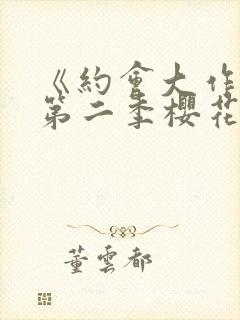 《約會大作
第二季櫻花
董雲都